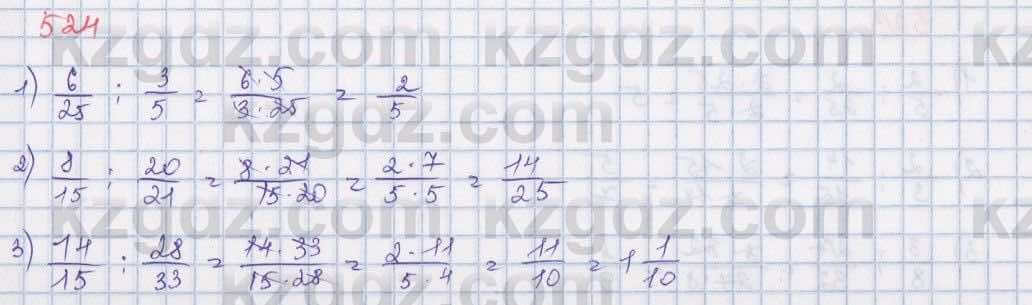 524
kzgdz.com kzgdz.com
1) 6/25 : 3/5 = 6·5/3·25 = 2/5
kzgdz.com
2) 8/15 : 20/21 = 8·21/15·20 = 2·7/5·5 = 14/25
kzgdz.com kzgdz.com
3) 14/15 : 28/33 = 14·33/15·28 = 2·11/5·4 = 11/10 = 1 1/10